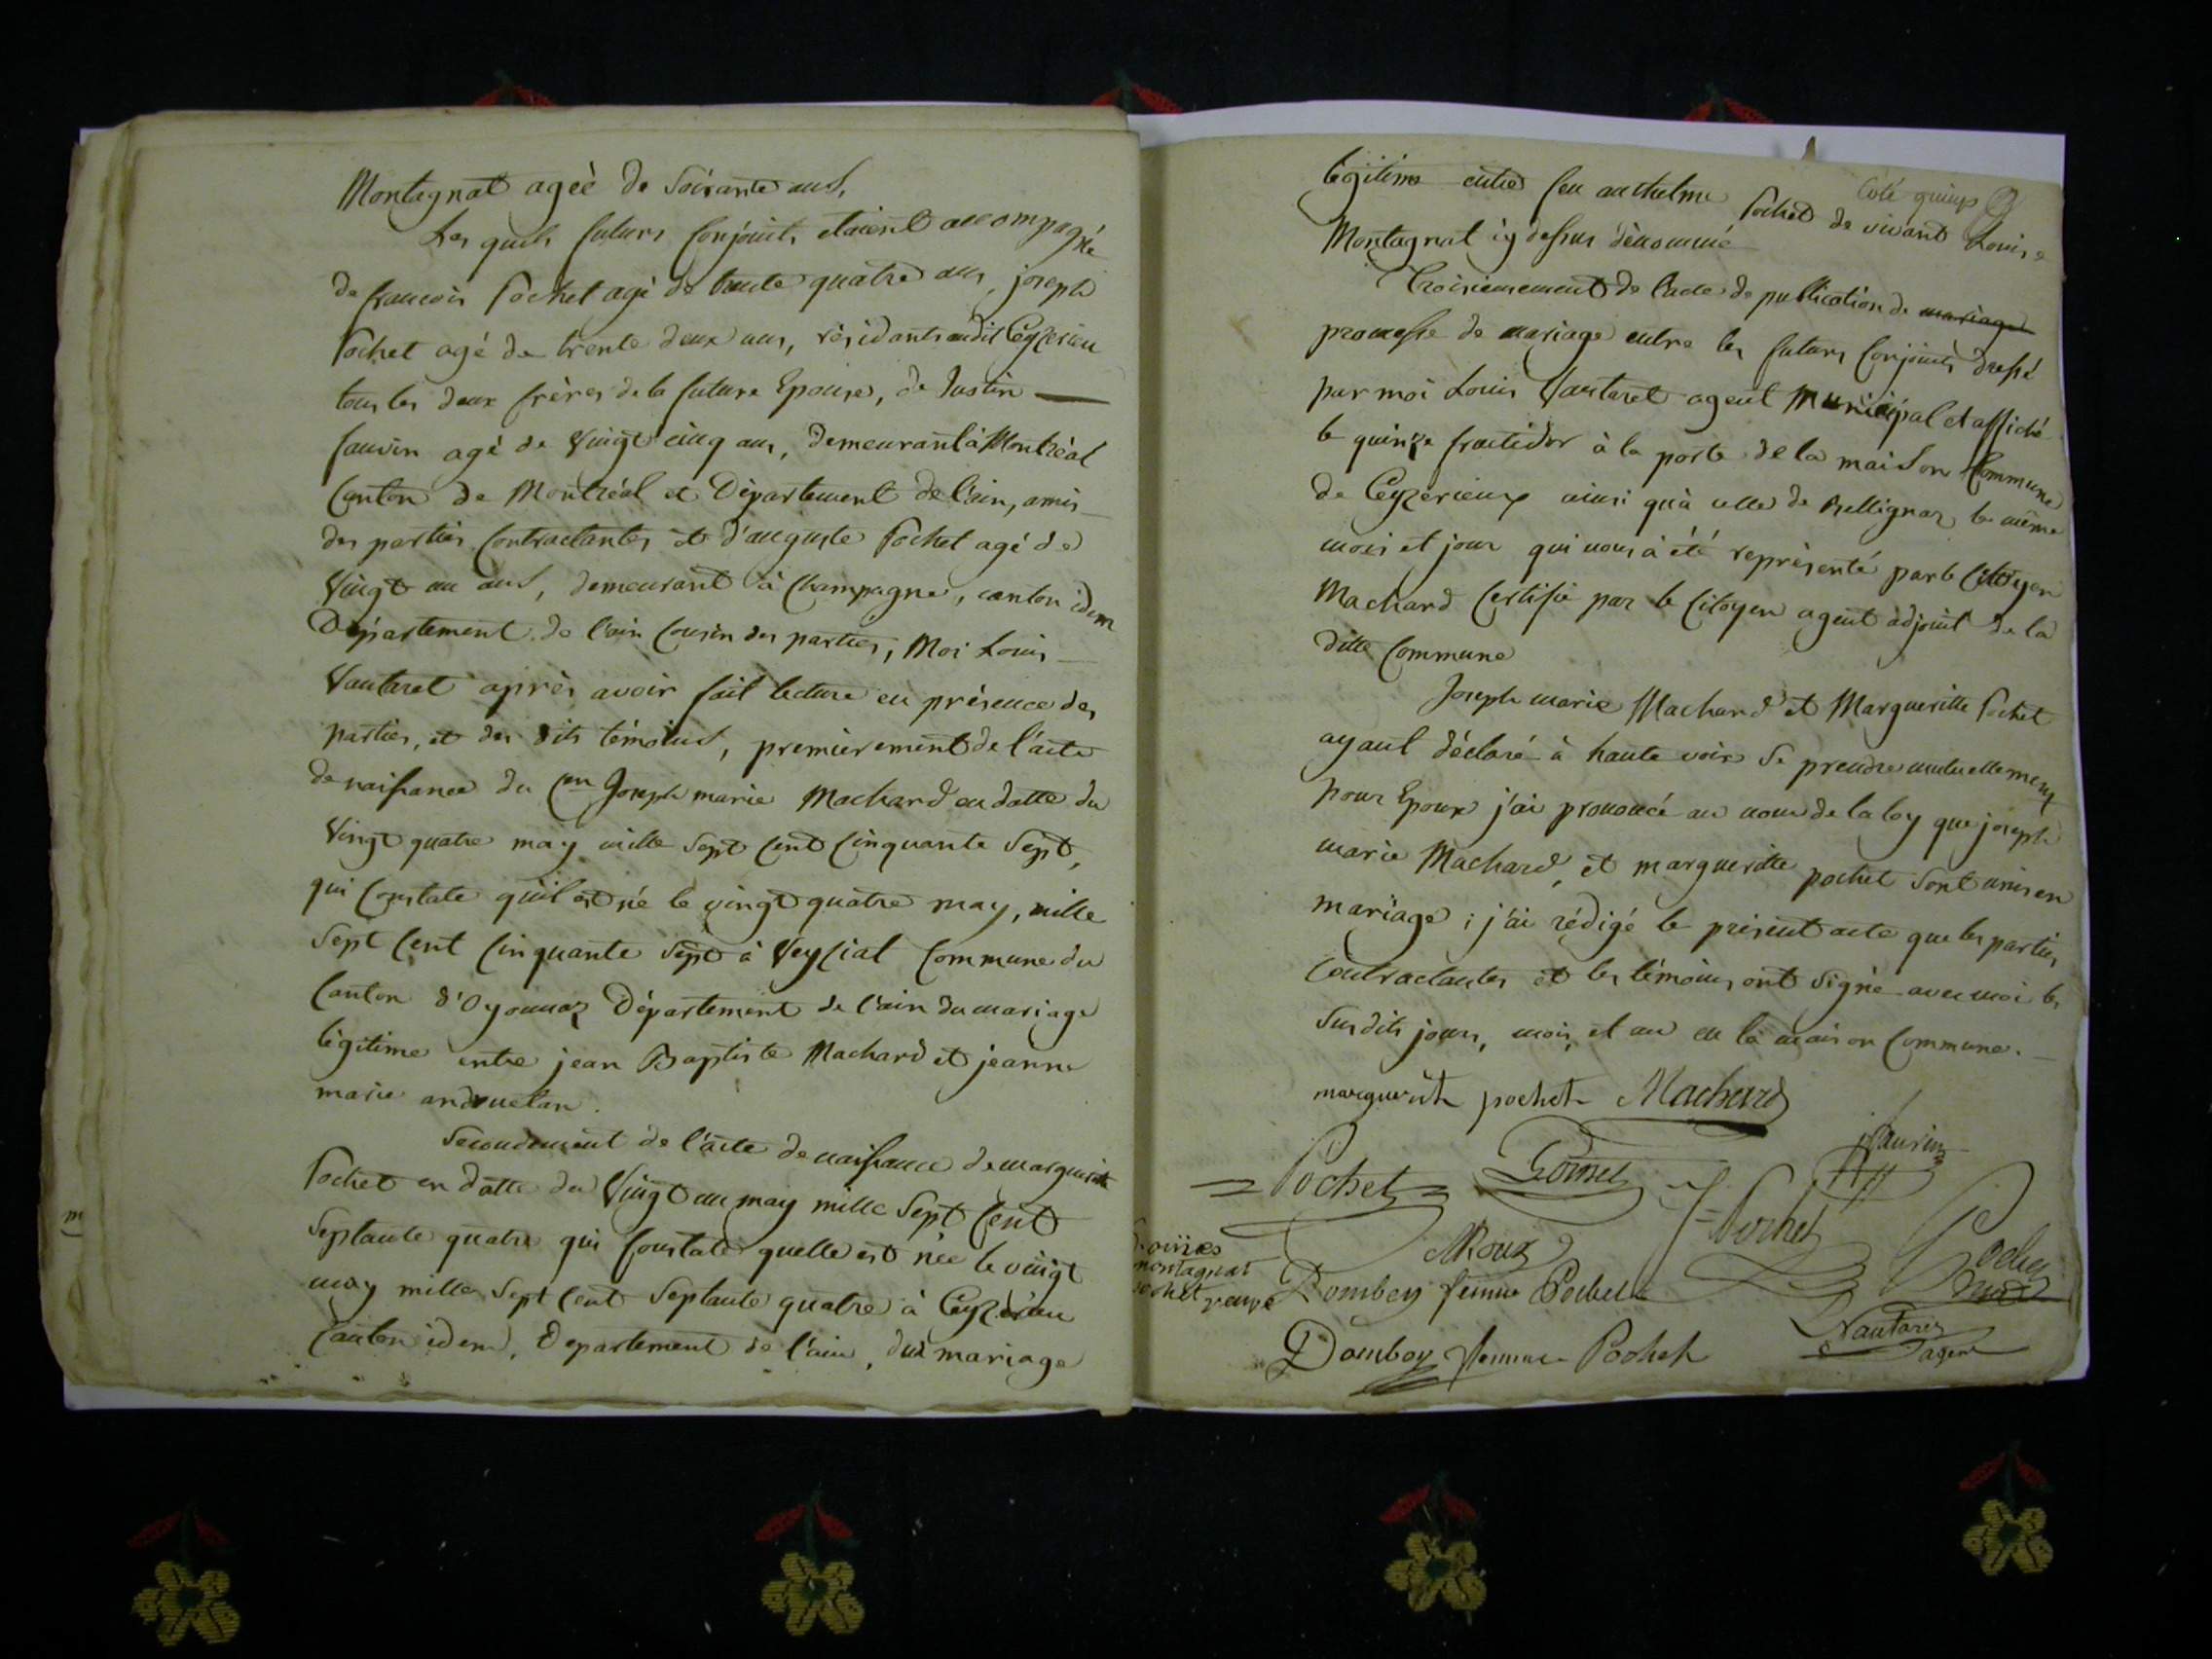 Montagnat ageè de Soixante ans,
Les quels futurs Conjoints etaient accompagné
de francois Pochet agé de trente quatre ans, joseph
Pochet agé de trente deux ans, résidants audit Ceyzerieu
tous les deux frères de la future Epouse, de Justin
agé de Vingt cinq ans, demeurant à Montréal
Canton de Montréal et Département de l'ain, amis
des parties Contractantes et d'auguste Pochet agé de
Vingt un ans, demeurant à Champagne, canton idem
Département de l'ain Cousin des parties, Moi Louis
Vautaret après avoir fait lecture en présence des
parties, et des dits témoins, premierement de l'acte
de naissance du Cen Joseph marie Machard en datte du
Vingt quatre may mille Sept Cent Cinquante Sept,
qui Constate qu'il est né le vingt quatre may, mille
Sept Cent Cinquante Sept à Veyziat Commune du
Canton d'Oyonnaz Département de l'ain du mariage
légitime entre jean Baptiste Machard et jeanne
marie
Secondement de l'acte de naissance de marguerite
Pochet en datte du Vingt un may mille Sept Cent
Septante quatre qui Constate quelle est née le vingt
may mille Sept Cent Septante quatre à Ceyzerieu
Canton idem, Departement de l'ain, du mariage
m
Coté quinze
légitime entre feu anthelme Pochet de vivant Louise
Montagnat cy dessus dénommé
Troisiemement de l'acte de publication de mariage
promesse de mariage entre les futurs Conjoints dressé
par moi Louis Vautaret agent Municipal et affiché
le quinze fructidor à la porte de la maison Commune
de Ceyzerieux ainsi qu'à celle de Bellignaz le même
mois et jour qui nous à été représenté par le Citoyen
Machard Certifié par le Citoyen agent adjoint de la
ditte Commune
Joseph marie Machard et Margueritte Pochet
ayant déclaré à haute voix Se prendre mutuellement
pour Epoux j'ai prononcé au nom de la loy que joseph
marie Machard, et marguerite pochet Sont unis en
mariage ; j'ai rédigé le présent acte que les parties
Contractantes et les témoins ont Signé avec moi les
Susdits jours, mois, et an en la maison Commune.
marguerite pochet Machard
Pochet
J Pochet
Roux
Louise
montagnat
pochet veuve
Dombey femme Pochet
Pochet
Dombey femme Pochet
Vautaret
agent